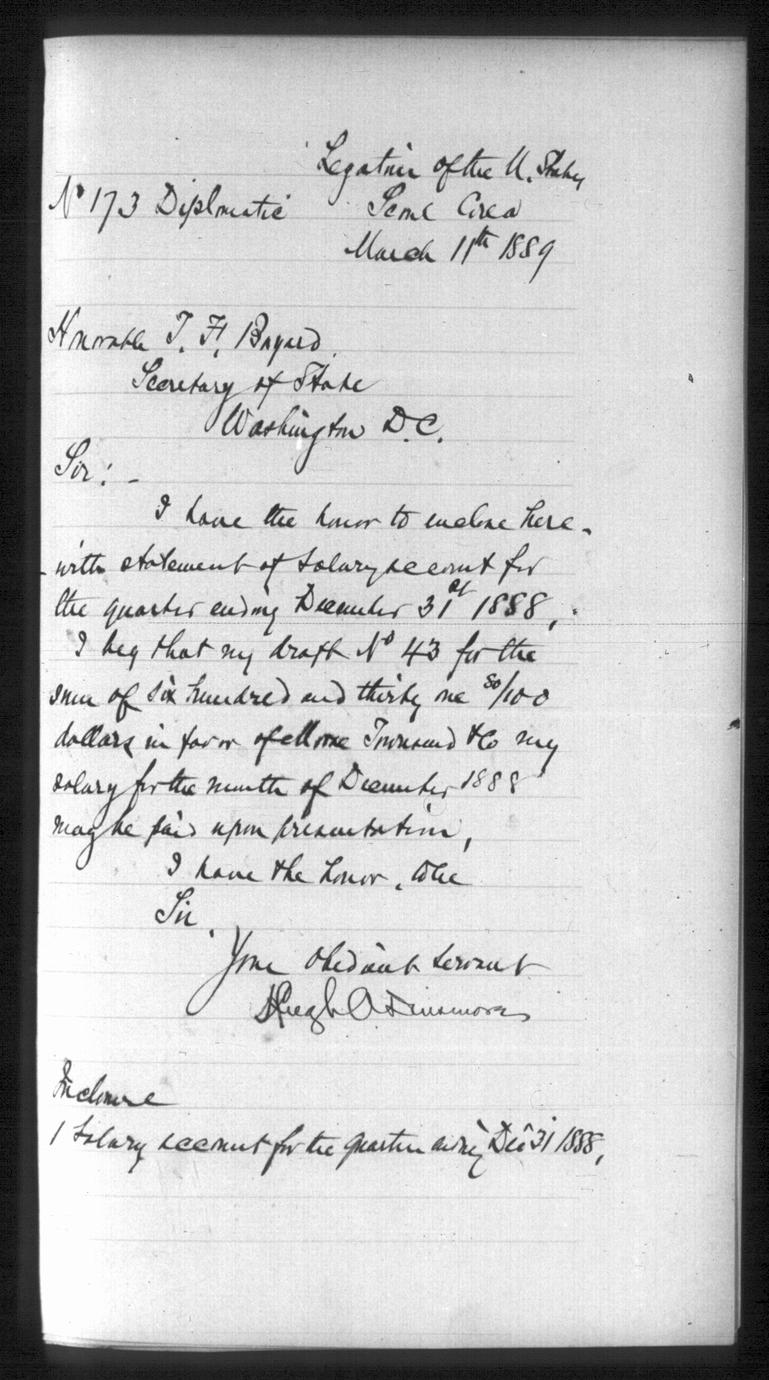 Legation of the U. States
No 173 Diplomatic Seoul Corea
March 11th 1889
Honorable T. F. Bayard
Secretary of State
Washington D.C.
Sir: -
I have the honor to enclose here-
with statement of salary account for
the quarter ending December 31st 1888,
I beg that my draft No 43 for the
sum of six hundred and thirty one 80/100
dollars in favor of Morse Townsend & Co my
salary for the month of December 1888
may be paid upon presentation,
I have the honor, to be
Sir,
Your obedient servant
Hugh A. Dinsmore
Inclosure
1 Salary account for the quarter ending Dec 31 1888,